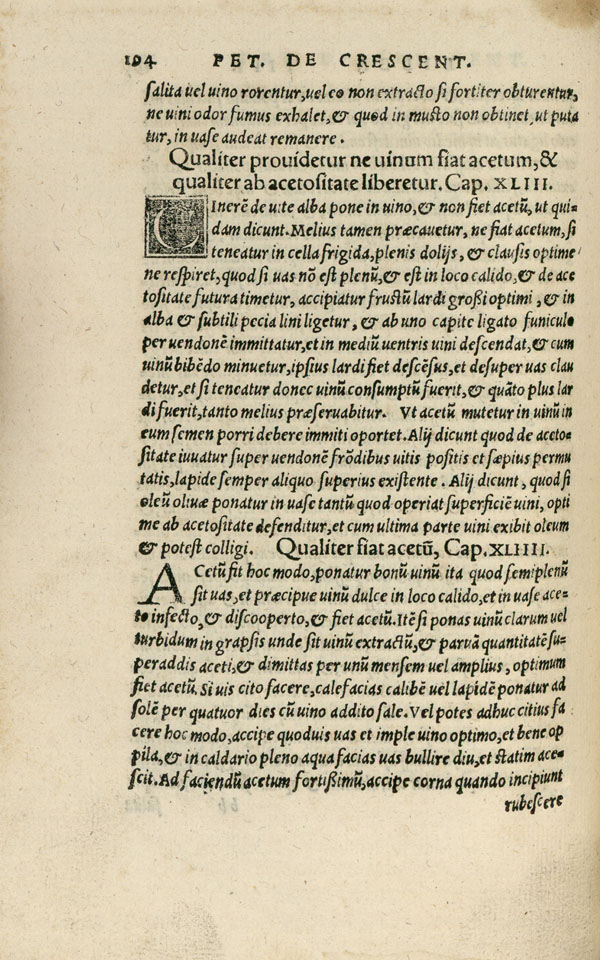 194 PET. DE CRESCENT.
salita uel uino rorentur, uel eo non extracto si fortiter obturentur,
ne uini odor fumus exhalet, & quod in musto non obtinet, ut puta
tur, in uase audeat remanere.
Qualiter prouidetur ne uinum fiat acetum, &
qualiter ab acetositate liberetur. Cap. XLIII.
CInerē de uite alba pone in uino, & non fiet acetū, ut qui-
dam dicunt. Melius tamen præcauetur, ne fiat acetum, si
teneatur in cella frigida, plenis dolijs, & clausis optime
ne respiret, quod si uas nō est plenū, & est in loco calido, & de ace
tositate futura timetur, accipiatur frustū lardi grossi optimi, & in
alba & subtili pecia lini ligetur, & ab uno capite ligato funiculo
per uendonē immittatur, et in mediū uentris uini descendat, & cum
uinū bibēdo minuetur, ipsius lardi fiet descēsus, et desuper uas clau
detur, et si teneatur donec uinū consumptū fuerit, & quāto plus lar
di fuerit, tanto melius præseruabitur. Vt acetū mutetur in uinū in
eum semen porri debere immiti oportet. Alij dicunt quod de aceto-
sitate iuuatur super uendonē frōdibus uitis positis et sæpius permu
tatis, lapide semper aliquo superius existente. Alij dicunt, quod si
oleū oliuæ ponatur in uase tantū quod operiat superficiē uini, opti
me ab acetositate defenditur, et cum ultima parte uini exibit oleum
& potest colligi. Qualiter fiat acetū, Cap. XLIIII.
ACetū fit hoc modo, ponatur bonū uinū ita quod semiplenū
sit uas, et præcipue uinū dulce in loco calido, et in uase ace-
to infecto, & discooperto, & fiet acetū. Itē si ponas uinū clarum uel
turbidum in grapsis unde sit uinū extractū, & paruā quantitatē su-
peraddis aceti, & dimittas per unū mensem uel amplius, optimum
fiet acetū. Si uis cito facere, calefacias calibē uel lapidē ponatur ad
solē per quatuor dies cū uino addito sale. Vel potes adhuc citius fa
cere hoc modo, accipe quoduis uas et imple uino optimo, et bene op
pila, & in caldario pleno aqua facias uas bullire diu, et statim ace-
scit. Ad faciendū acetum fortissimū, accipe corna quando incipiunt
rubescere